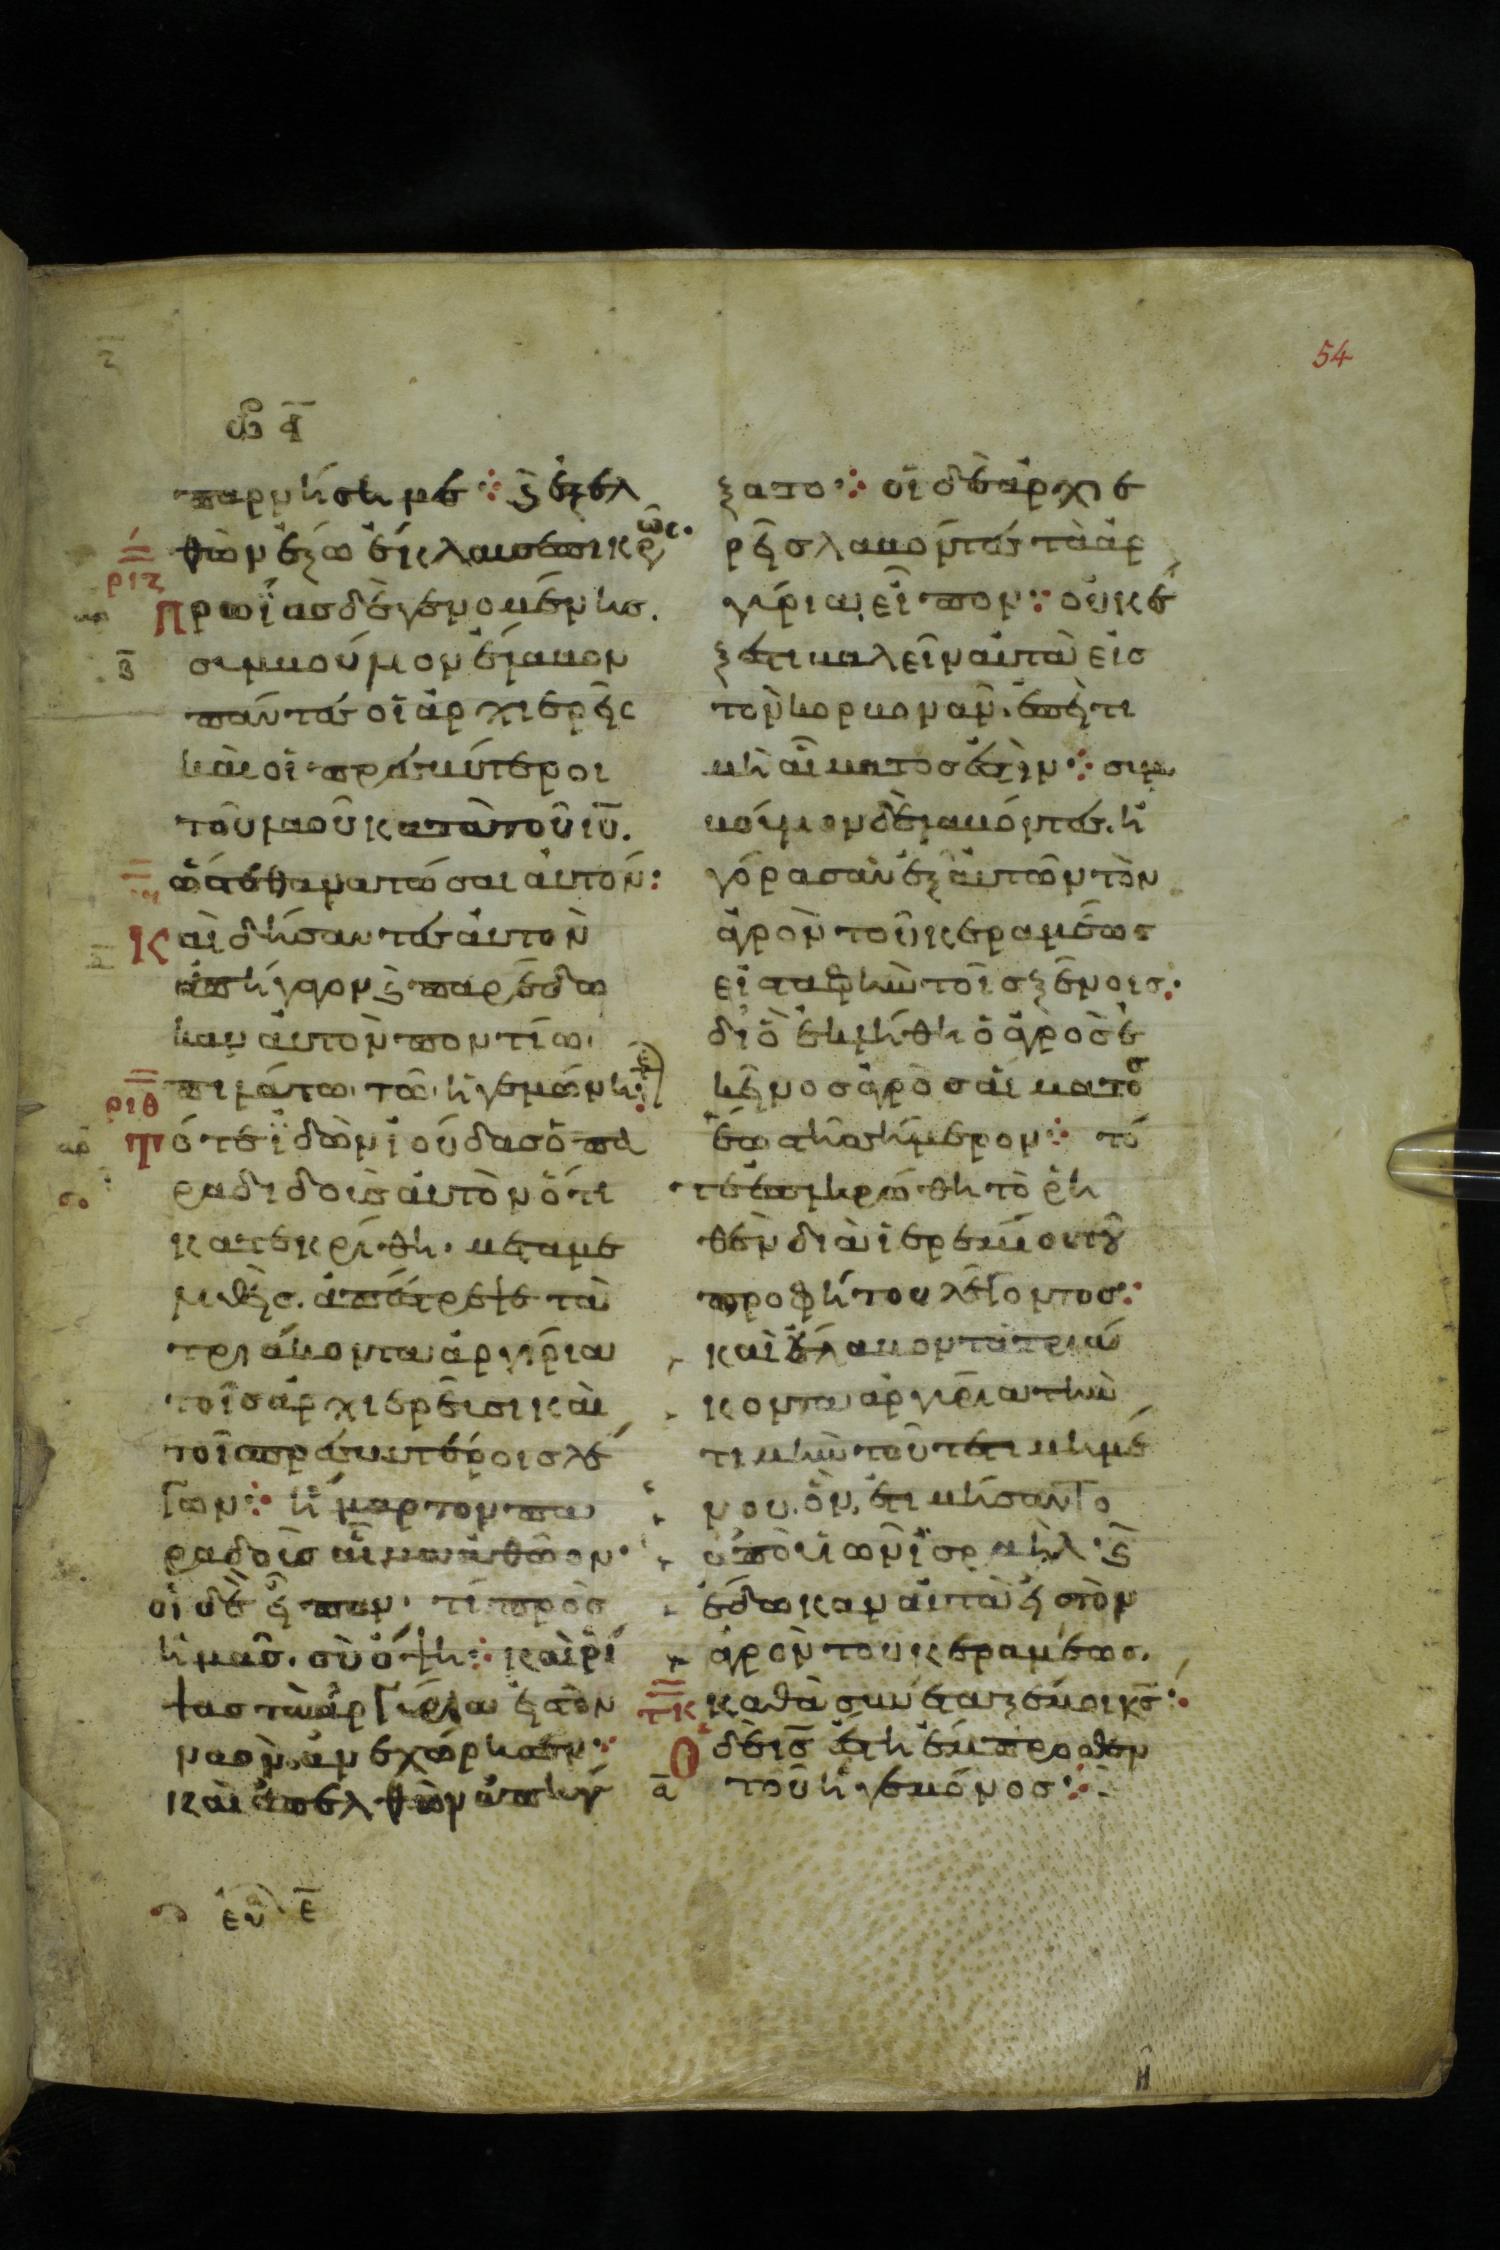 54
ὥρ ᾱ
παρνήση με ⁘ ϗ ἐξελ
θὼν ἔξω ἔκλαυσεν πικρῶς·
ριζ
Πρωΐας δὲ γενομένης.
συμβούλιον ἔλαβον
πάντες οἱ ἀρχιερεῖς
καὶ οἱ πρεσβύτεροι
τοῦ λαοῦ κατὰ τοῦ ιῦ.
ὥστε θανατώσαι αὐτόν:
Καὶ δήσαντες αὐτὸν
ἀπήγαγον ϗ παρέδω
καν αὐτὸν ποντίω·
πιλάτω· τῶ ἡγεμόνι:
ριθ
Τότε ἰδὼν ἰούδας ὁ πα
ραδιδοὺς αὐτὸν ὅτι
κατεκρίθη· μεταμε
ληθεὶς. ἀπέστρεψε τὰ
τριάκοντα ἀργύρια
τοῖς ἀρχιερεῦσι καὶ
τοῖς πρεσβυτέροις λέ
γων ⁘ ἥμαρτον πα
ραδοὺς αἷμα ἀθῶον·
οἱ δὲ εἶπον· τί πρὸς
ἡμᾶς. σὺ ὄψη ⁘ καὶ ῥί
ψας τὰ ἀργύρια εἰς τὸν
ναὸν. ἀνεχώρησεν ⁘
καὶ ἀπελθὼν ἀπήγ
ξατο ⁘ οἱ δὲ ἀρχιε
ρεῖς λαβόντες τὰ ἀρ
γύρια, εἶπον ⁘ οὐκ ἔ
ξεστι βαλεῖν αὐτὰ εἰς
τὸν κορβονᾶν. ἐπεὶ τι
μὴ αἵματος ἐστὶν ⁘ συμ
βούλιον δὲ λαβόντες. ἠ
γόρασαν ἐξ αὐτῶν τὸν
ἀγρὸν τοῦ κεραμέως
εἰς ταφὴν τοῖς ξένοις ⁘
διὸ ἐκλήθη ὁ ἀγρὸς ἐ
κεῖνος ἀγρὸς αἵματος
ἕως τῆς σήμερον ⁘ τό
τε ἐπληρώθη τὸ ῥη
θὲν διὰ ἱερεμίου τοῦ
προφήτου λέγοντος ⁘
καὶ ἔλαβον τὰ τριά
κοντα ἀργύρια τὴν
τιμὴν τοῦ τετιμημέ
νου. ὃν ἐτιμήσαντο
ἀπὸ υἱῶν ἰσραὴλ· ϗ
ἔδωκαν αὐτὰ εἰς τὸν
ἀγρὸν τοῦ κεραμέως.
καθὰ συνέταξέ μοι κς̄ ⁘
τκ
Ὁ δὲ ις̄ ἔστη ἔμπροσθεν
τοῦ ἡγεμόνος ⁘